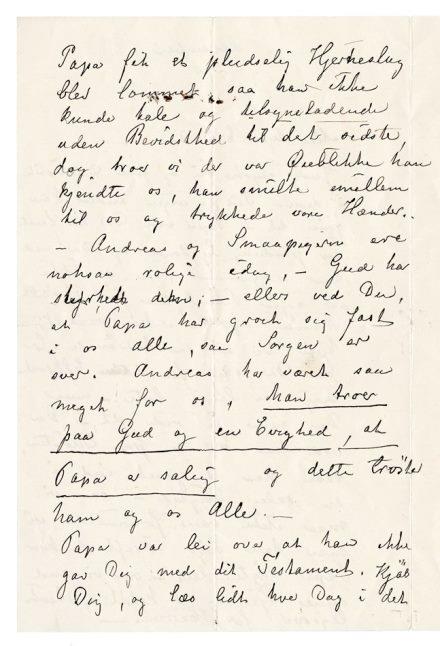 Papa fik et pludselig Hjerneslag
blev lammet, saa han ikke
kunde tale og tilsyneladende
uden Bevidsthed til det sidste,
dog troer vi der var Øieblikke han
kjendte os, han smilte imellem
til os og trykkede vore Hænder..
– Andreas og Smaapigerne ere
noksaa rolige idag, – Gud har
styrket dem; – ellers ved Du,
at Papa har groet sig fast
i os alle, saa Sorgen er
svær. Andreas har været saa
meget for os, han troer
paa Gud og en Evighed, at
Papa er salig og dette trøster
ham og os Alle. –
Papa var lei over at han ikke
gav Dig med dit Testament. Kjøb
Dig, og læs lidt hver Dag i det